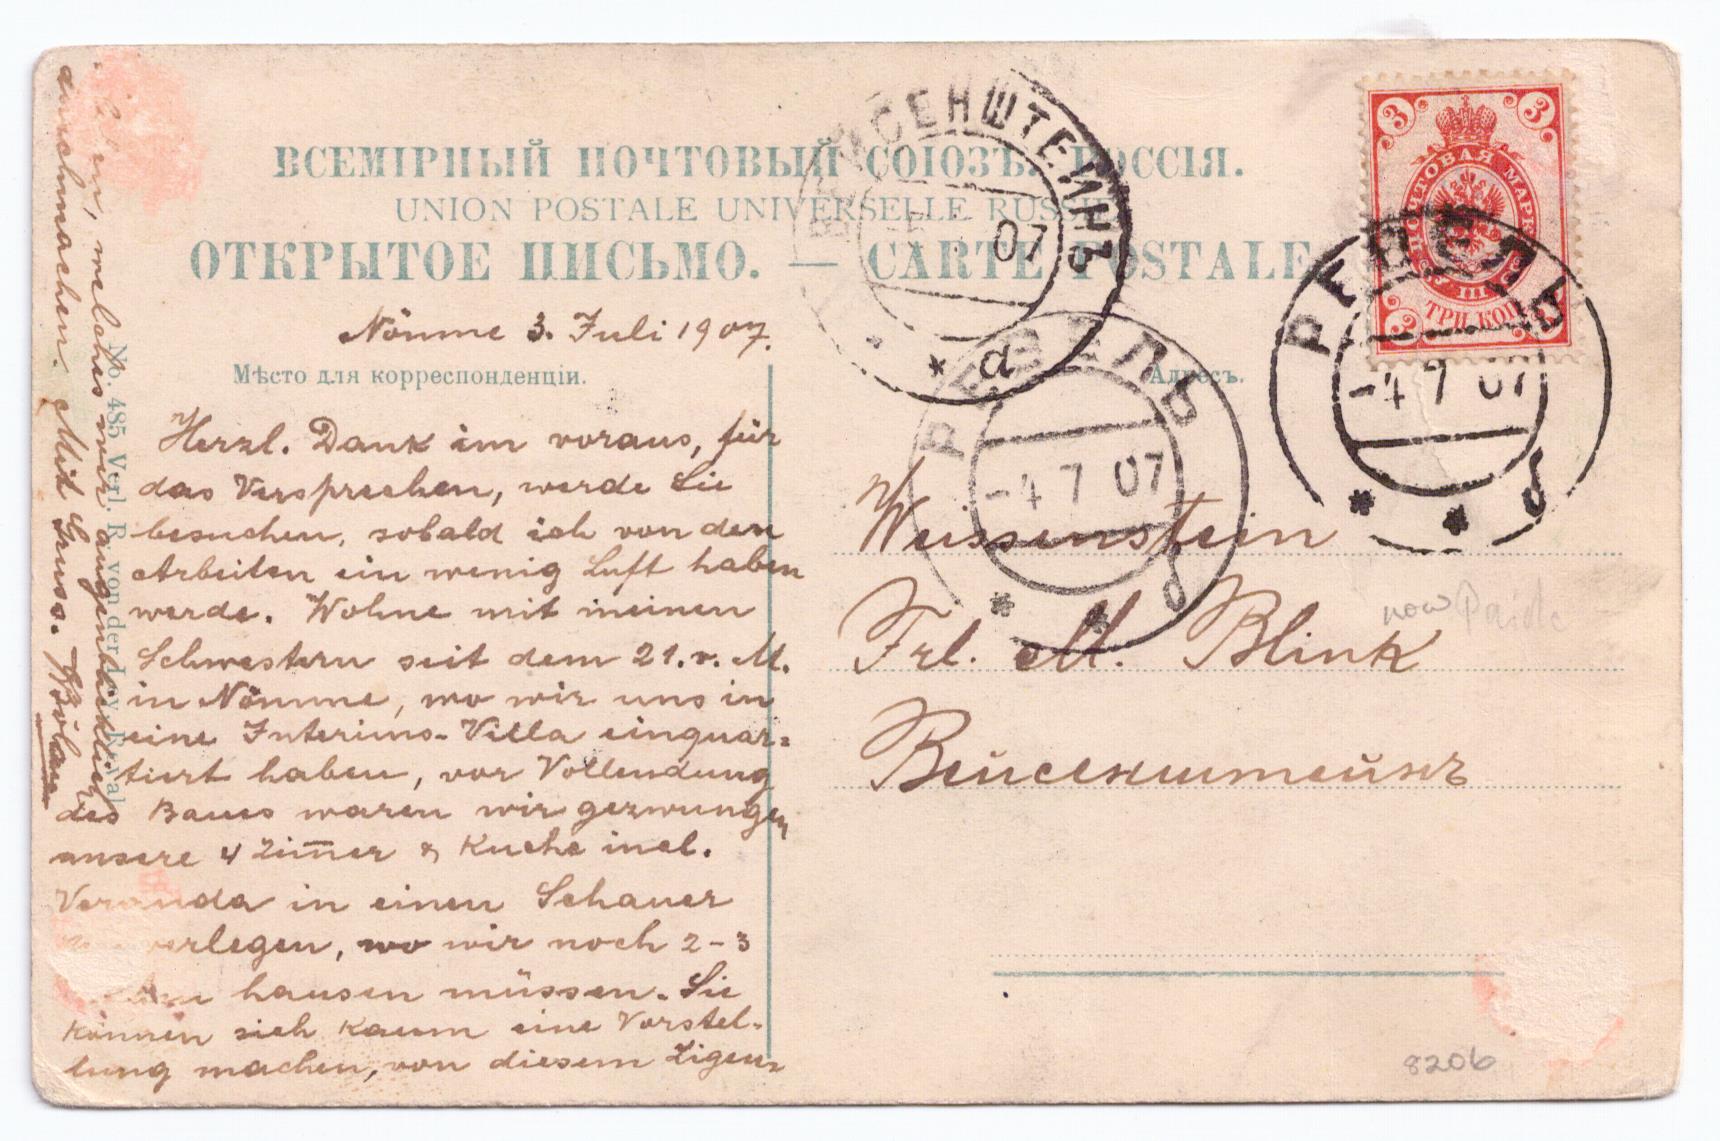 ВСЕМІРНЫЙ ПОЧТОВЫЙ СОЮЗЪ. РОССІЯ.
UNION POSTALE UNIVERSELLE RUSSIE
ОТКРЫТОЕ ПИСЬМО. — CARTE POSTALE
Nömme 3. Juli 1907.
Мѣсто для корреспонденціи.
Адресъ.
Herzl. Dank im voraus, für
das Versprechen, werde Sie
besuchen, sobald ich von den
Arbeiten ein wenig Luft haben
werde. Wohne mit meinen
Schwestern seit dem 21. v. M.
in Nömme, wo wir uns in
eine Interims-Villa einquar-
tiert haben, vor Vollendung
des Baues waren wir gezwungen
unsere 4 Zim̅er & Küche incl.
Veranda in einen Schauer
verlegen, wo wir noch 2-3
hausen müssen. Sie
können sich kaum eine Vorstel-
lung machen, von diesem Zigeu-
welches wir augenblickl.
durchmachen. Mit Gruss. WBölau
No. 485 Verl. R. von der Ley Reval
Weissenstein
Frl. M. Blink
Вейсенштейнъ
now Paide
8206
3 3
ПОЧТОВАЯ МАРКА
III
3 ТРИ КОП 3
ВЕЙСЕНШТЕЙНЪ
07
* а
РЕВЕЛЬ
-4 7 07
* * б
РЕВЕЛЬ
-4 7 07
* * б